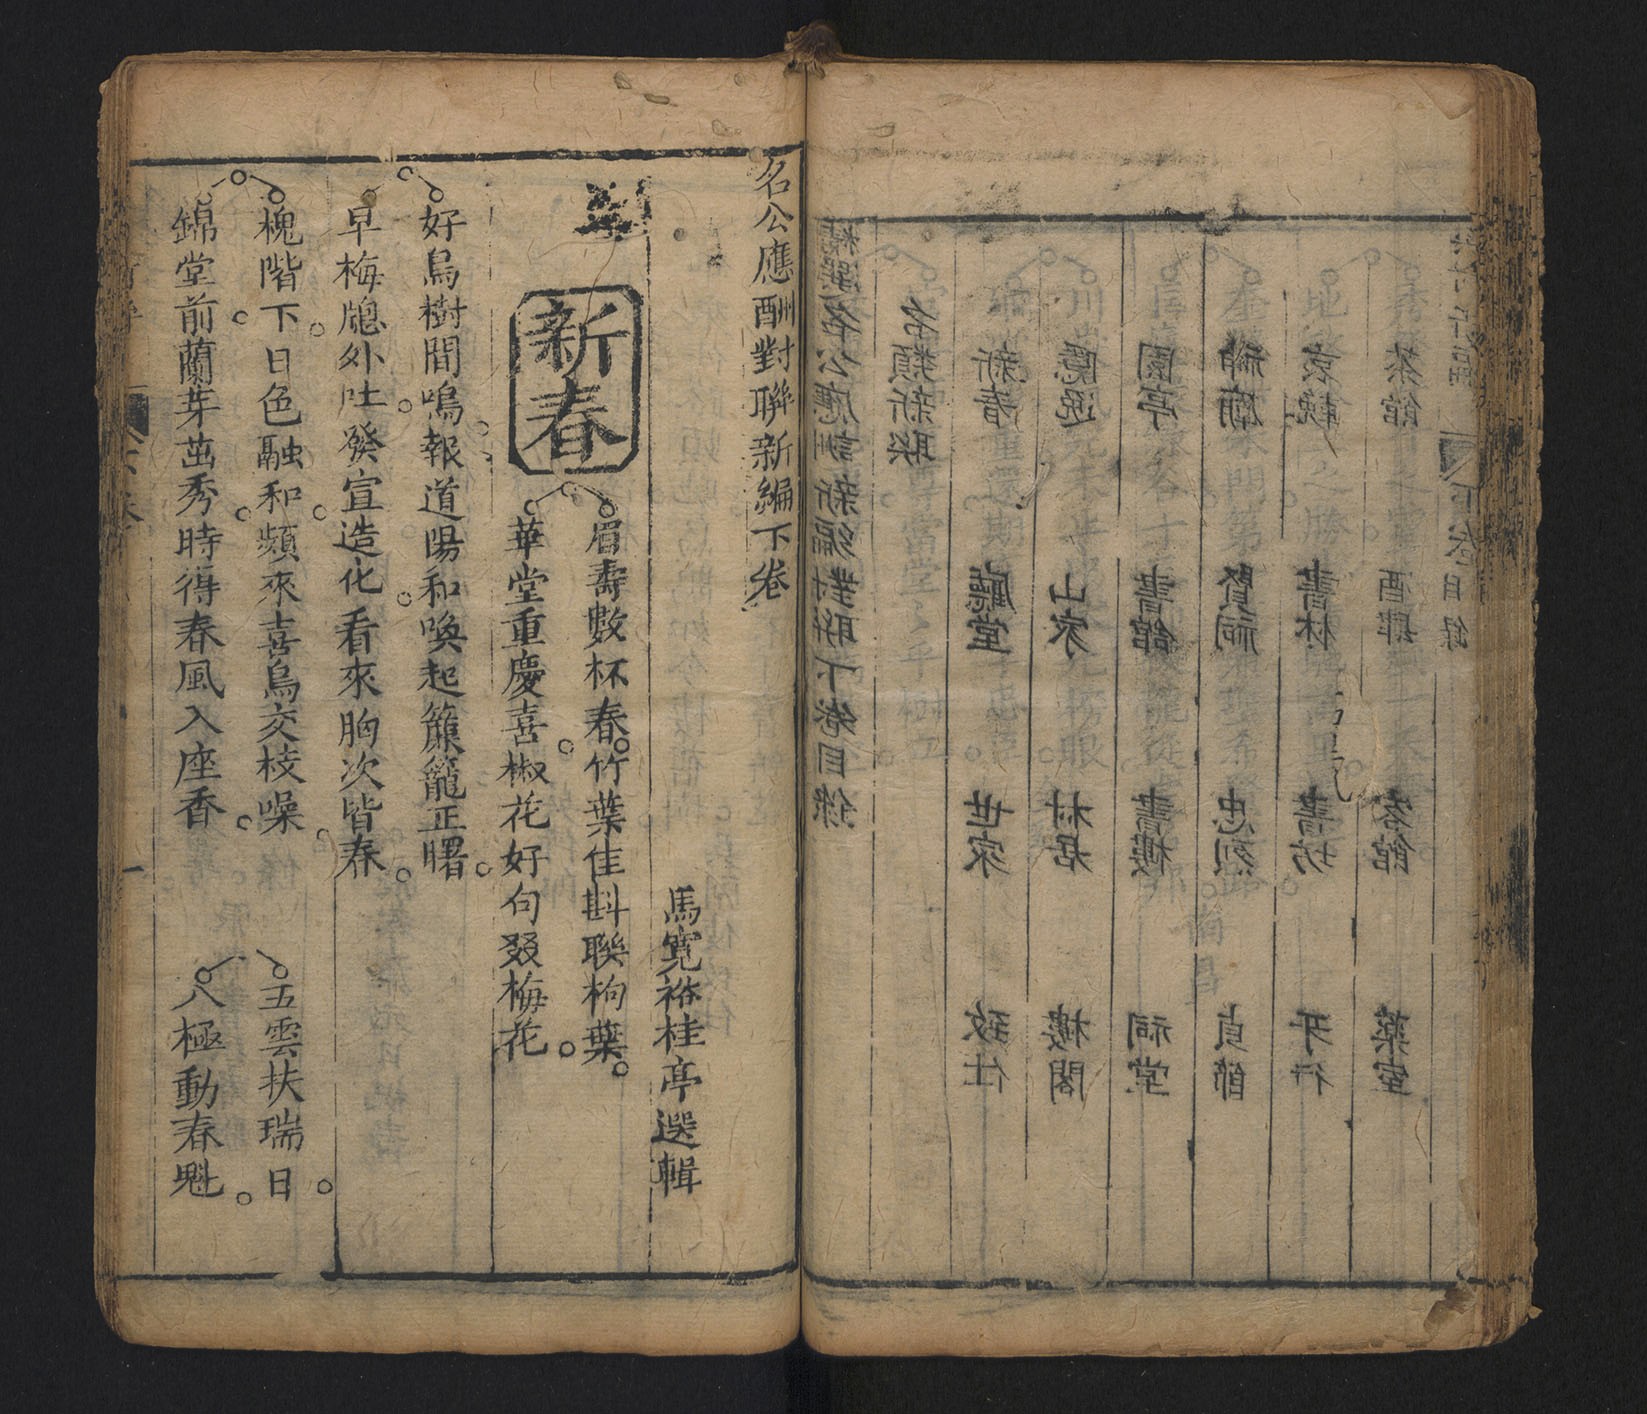 精選名公應酬新編對聯下卷目錄
各類新聯
新春 廳堂 世家 致仕
隱逸 山家 村居 樓閣
園亭 書舘 書樓 祠堂
神廟 賢祠 忠烈 貞節
哀輓 書林 書坊 牙行
茶館 酒肆 客館 藥室
下卷目錄
名公應酬對聯新編下卷
馬寛裕桂亭選輯
新春
眉壽數杯春竹葉佳斟聯枸葉
華堂重慶喜椒花好句叕梅花
好鳥樹間鳴報道陽和喚起簾籠正曙
早梅牕外吐發宣造化看來胸次皆春
槐階下日色融和頻來喜鳥交枝噪
錦堂前蘭芽茁秀時得春風入座香
五雲扶瑞日
八極動春魁